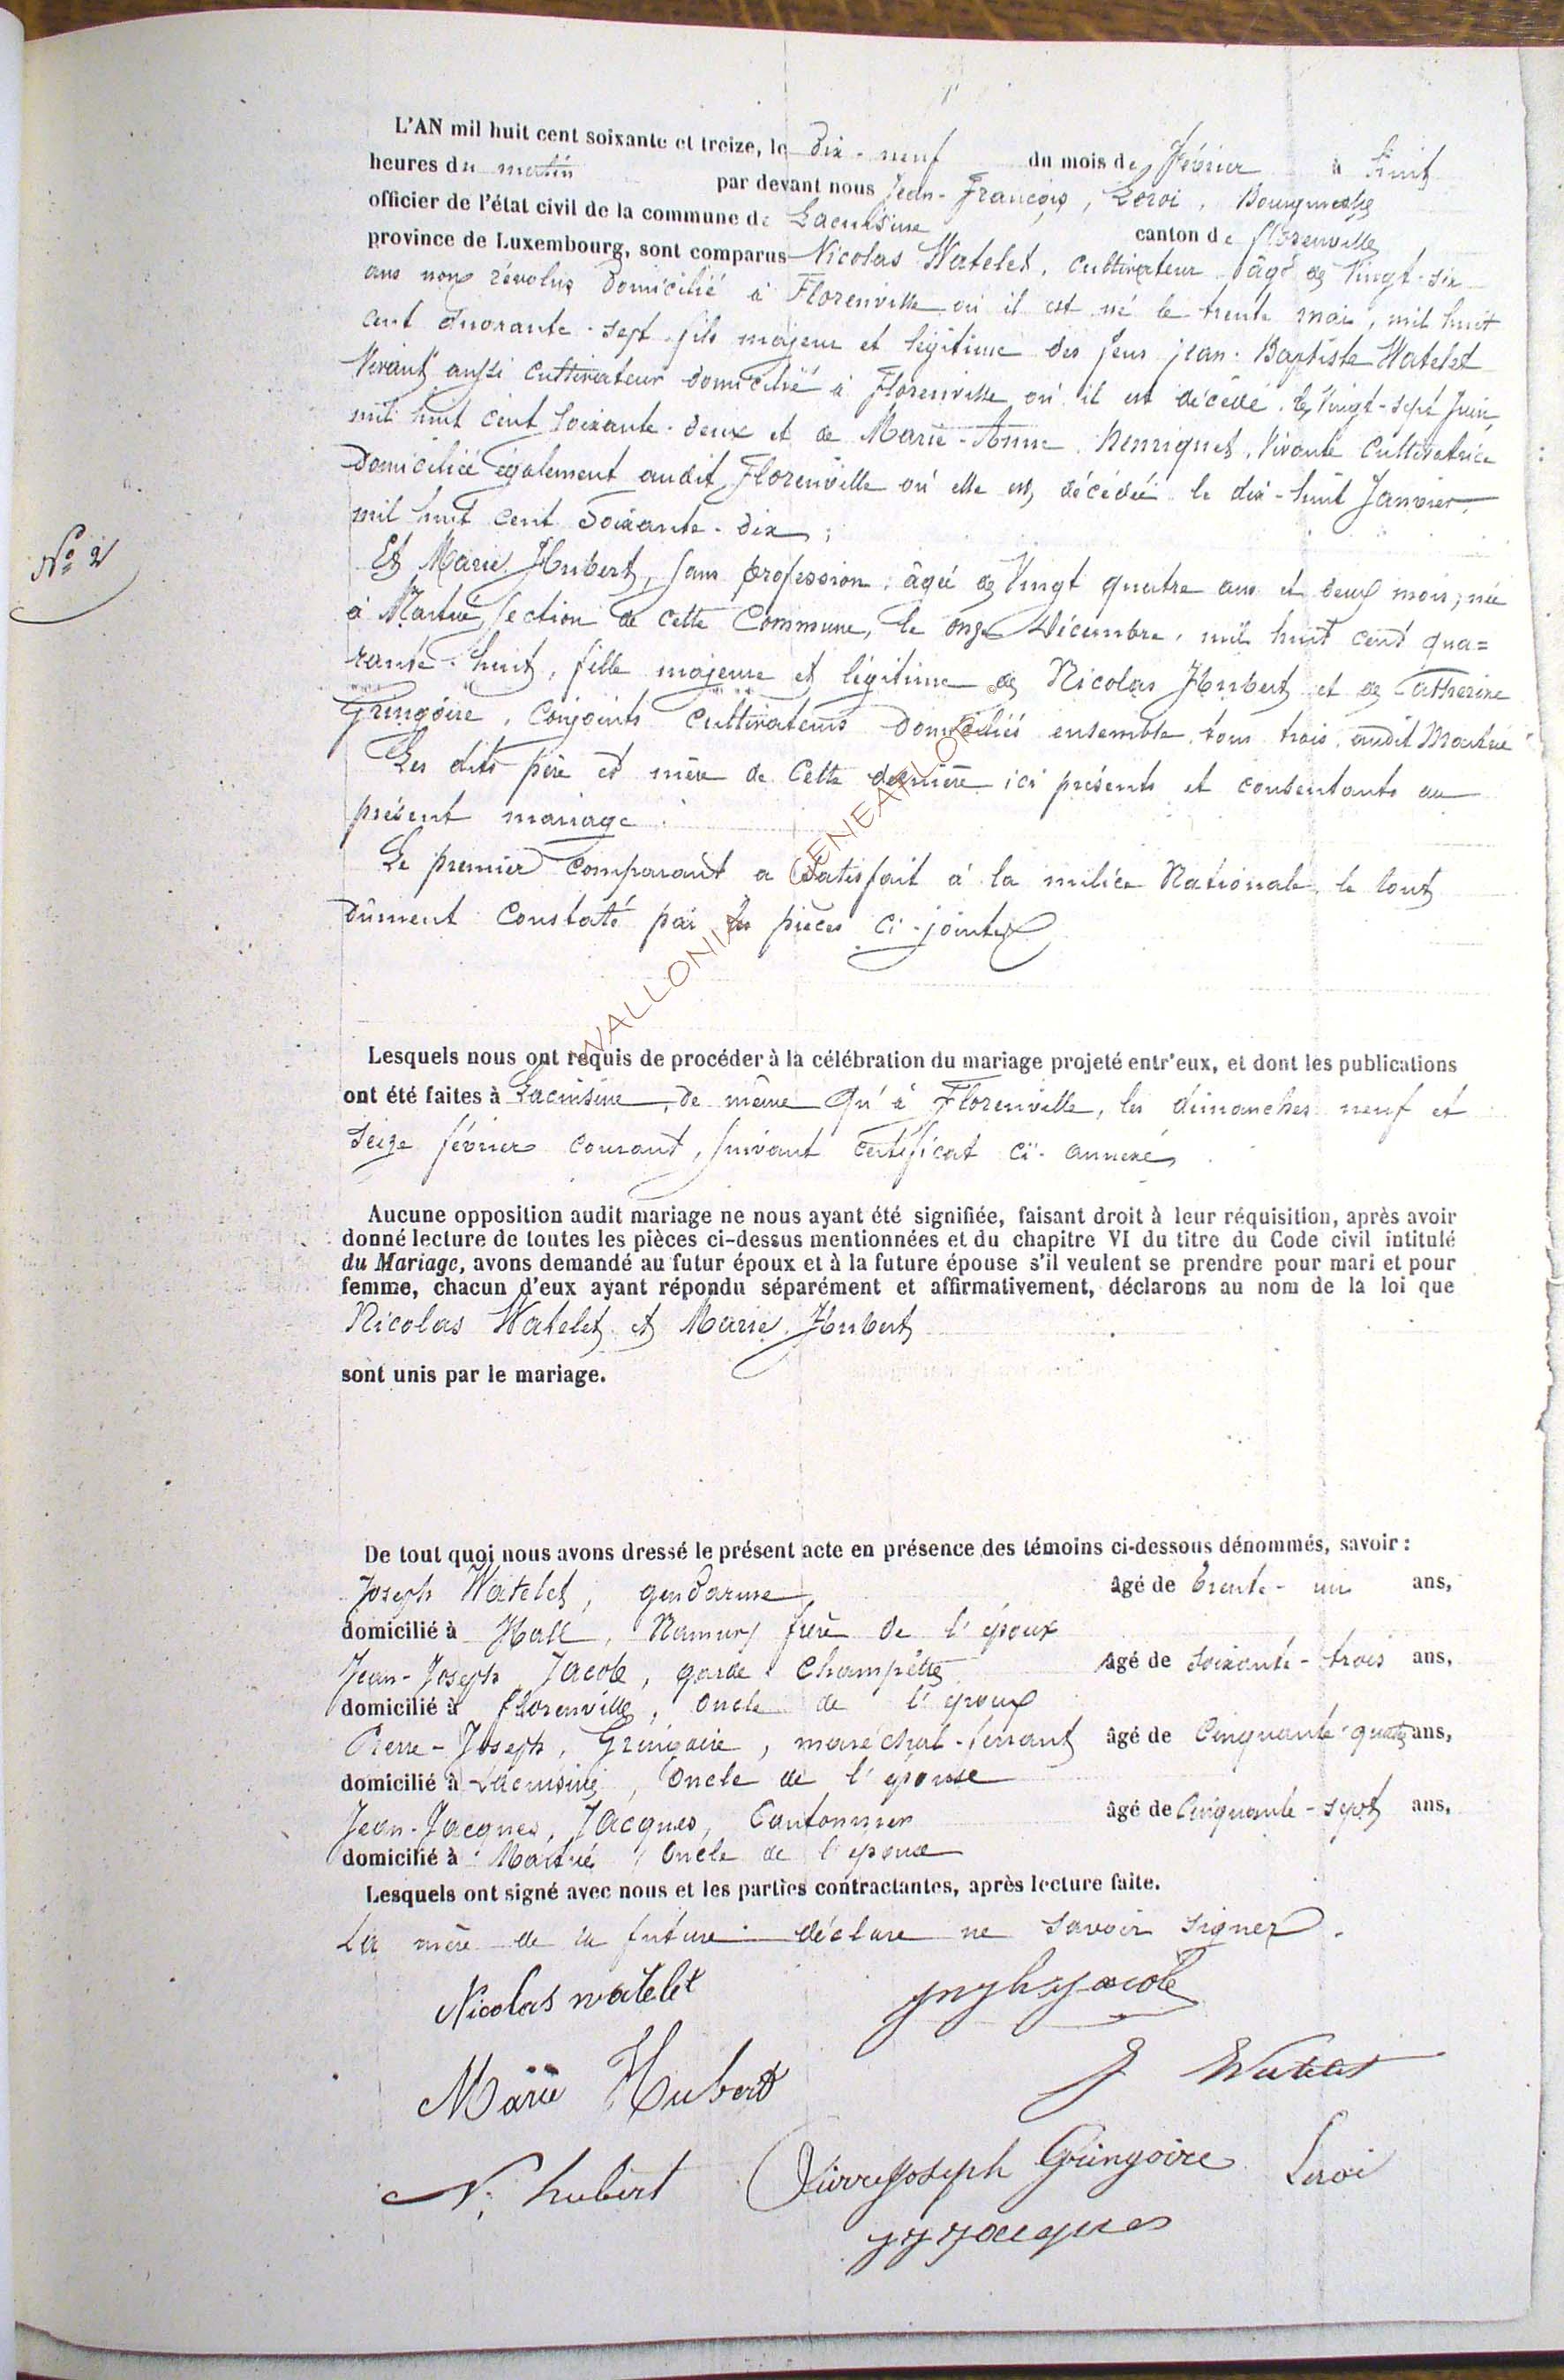 L'AN mil huit cent soixante et treize, le dix-neuf du mois de février à huit
heures du matin par devant nous Jean-François, Leroi, Bourgmestre
officier de l'état civil de la commune de Lacuisine canton de florenville
province de Luxembourg, sont comparus Nicolas Watelet, cultivateur âgé de Vingt-six
ans non révolus domicilié à Florenville où il est né le trente mai, mil huit
cent quarante-sept fils majeur et légitime des feus jean-Baptiste Watelet
Vivant aussi cultivateur domicilié à Florenville où il est décédé, le vingt-sept Juin
mil huit cent soixante-deux et de Marie-Anne Henriquet, Vivante Cultivatrice
Domiciliée également audit Florenville où elle est décédée le dix-huit Janvier
mil huit cent soixante-dix ;
N° 2
Et Marie Hubert, sans profession, âgée de Vingt quatre ans et deux mois, née
à Martué, section de cette Commune, le onze Décembre, mil huit cent qua=
rante-huit, fille majeure et légitime de Nicolas Hubert et de Catherine
Gringoire, Conjoints Cultivateurs Domiciliés ensemble, tous trois, audit Martué
Les dits père et mère de Cette dernière ici présents et consentants au
présent mariage.
Le premier Comparant a satisfait à la milice Nationale, le tout
dûment Constaté par les pièces ci-jointes
© WALLONIE GENEAFLOR
Lesquels nous ont requis de procéder à la célébration du mariage projeté entr'eux, et dont les publications
ont été faites à Lacuisine, de même qu'à Florenville, les dimanches neuf et
seize février courant, suivant certificat ci-annexé
Aucune opposition audit mariage ne nous ayant été signifiée, faisant droit à leur réquisition, après avoir
donné lecture de toutes les pièces ci-dessus mentionnées et du chapitre VI du titre du Code civil intitulé
du Mariage, avons demandé au futur époux et à la future épouse s'il veulent se prendre pour mari et pour
femme, chacun d'eux ayant répondu séparément et affirmativement, déclarons au nom de la loi que
Nicolas Watelet et Marie Hubert
sont unis par le mariage.
De tout quoi nous avons dressé le présent acte en présence des témoins ci-dessous dénommés, savoir :
Joseph Watelet, gendarme âgé de trente-un ans,
domicilié à Namur, frère de l'époux
Jean-Joseph Jacob, garde Champêtre âgé de soixante-trois ans,
domicilié à florenville, Oncle de l'époux
Pierre-Joseph, Gringoire, maréchal-ferrant âgé de Cinquante-quatre ans,
domicilié à Lacuisine, Oncle de l'épouse
Jean-Jacques, Jacques, Cantonnier âgé de Cinquante-sept ans,
domicilié à Martué, Oncle de l'épouse
Lesquels ont signé avec nous et les parties contractantes, après lecture faite.
La mère de la future déclare ne savoir signer.
Nicolas watelet
Marie Hubert J Watelet
N. hubert Pierre Joseph Gringoire Leroi
JJ Jacques